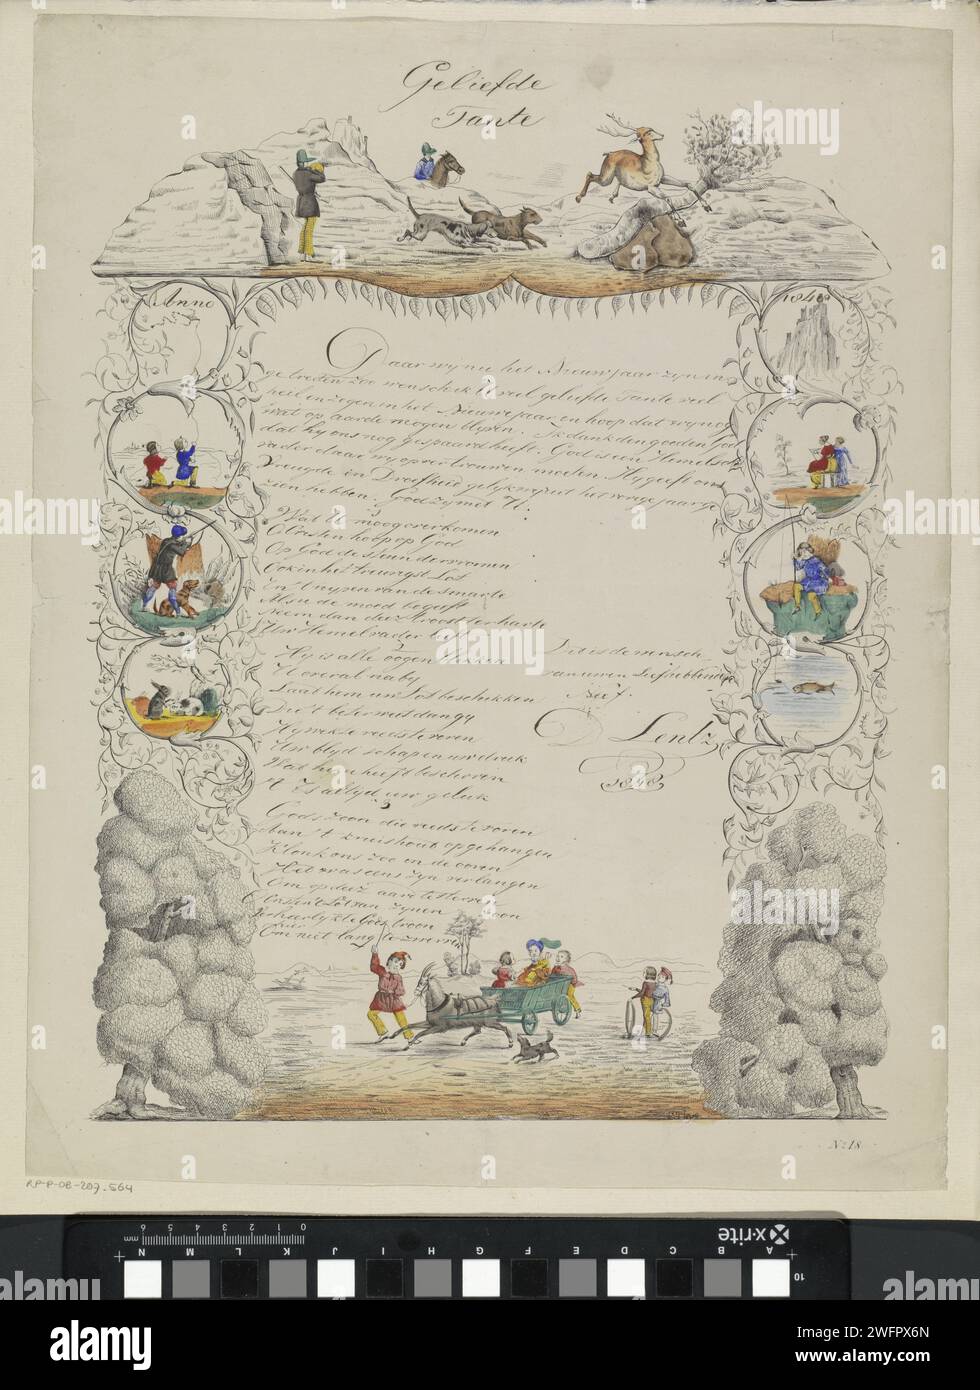 Geliefde
Tante
Anno
1848
Daar wij nu het Nieuwejaar zijn in
ge treden zoo wensch ik U veel geliefde Tante veel
heil en zegen in het Nieuwejaar en hoop dat wij nog
wat op aarde mogen blyven. Ik dank den goeden God
dat hy ons nog gespaard heeft. God is een Hemelsch
vader daar wy op vertrouwen moeten. Hy geeft ons
Vreugde en Droefheid gelijk wy uit het vorige jaar ge
zien hebben. God zy met U.
Wat U moog overkomen
O Tante hoop op God
Op God de steun der vromen
Ook in het treurigst Lot
In 't nypen van de smarte
Als u de moed begeeft
Neem dan deez troost ter harte
Uw Hemelvader leeft
Hy is alle oogen
U overal naby
Laat hem uw Lot beschikken
Die 't beter weet dan gy
Hy wikte reeds te voren
Uw blyd schap en uw druk
Wat hy u heeft beschoren
't Is altyd uw geluk
Gods zoon die reeds te voren
Aan 't kruishout opgehangen
Klonk ons zoo in de ooren
Het was eens zyn verlangen
Om op deez aarde te sterven
troon
Om niet lang te zwerven
Dit is de wensch
van uwen Liefhebbende
Neef.
D Lentz
1848
N: 18
RP-P-OB-207.564
mm 6 5 4 3 2 1 0
x-rite
N M L K J I H G F E D C B A
10
alamy
Image ID: 2WFPX6N
www.alamy.com